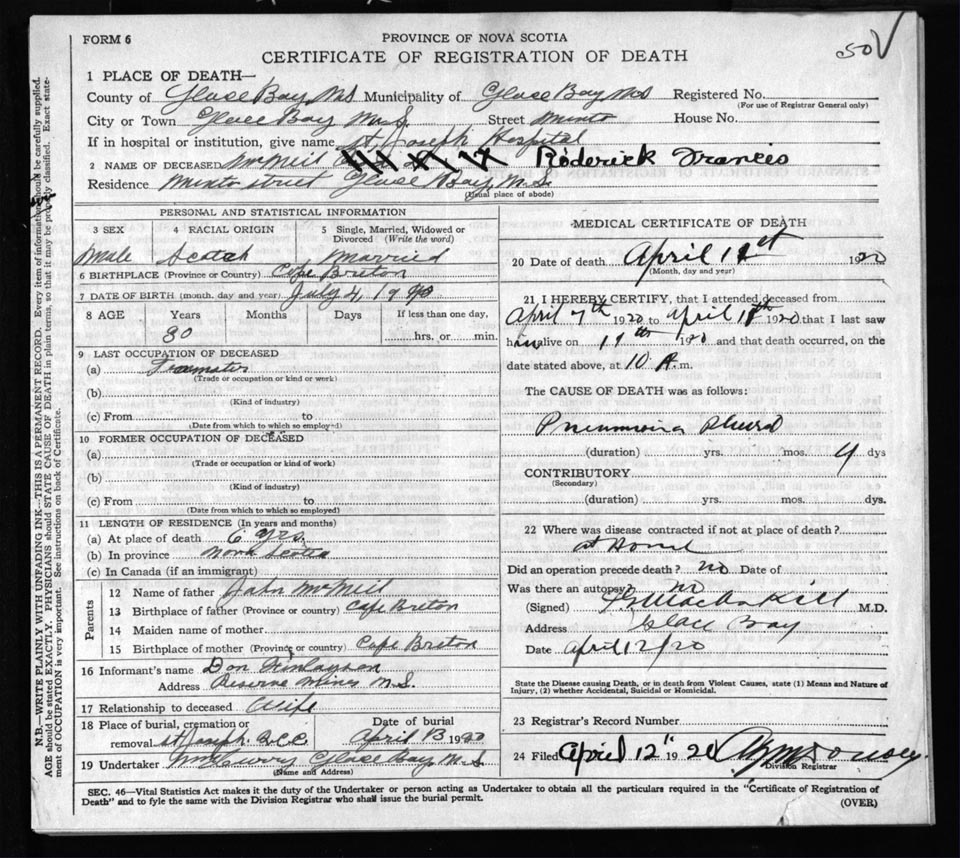 FORM 6
PROVINCE OF NOVA SCOTIA
CERTIFICATE OF REGISTRATION OF DEATH
50 V
1 PLACE OF DEATH—
County of Glace Bay NS Municipality of Glace Bay NS Registered No.
(For use of Registrar General only)
City or Town Glace Bay N.S. Street Minto House No.
If in hospital or institution, give name St. Joseph Hospital
2 NAME OF DECEASED McNeil Roderick Francis
Residence Minto Street Glace Bay N.S.
(Usual place of abode)
PERSONAL AND STATISTICAL INFORMATION
3 SEX 4 RACIAL ORIGIN 5 Single, Married, Widowed or Divorced (Write the word)
Male Scotch Married
6 BIRTHPLACE (Province or Country) Cape Breton
7 DATE OF BIRTH (month, day and year) July 4, 19
8 AGE Years Months Days If less than one day,
30 hrs. or min.
9 LAST OCCUPATION OF DECEASED
(a) Teamster
(Trade or occupation or kind or work)
(b)
(Kind of industry)
(c) From to
(Date from which to which so employed)
10 FORMER OCCUPATION OF DECEASED
(a)
(Trade or occupation or kind of work)
(b)
(Kind of industry)
(c) From to
(Date from which to which so employed)
11 LENGTH OF RESIDENCE (In years and months)
(a) At place of death 6 yrs.
(b) In province Nova Scotia
(c) In Canada (if an immigrant)
Parents
12 Name of father John McNeil
13 Birthplace of father (Province or country) Cape Breton
14 Maiden name of mother
15 Birthplace of mother (Province or country) Cape Breton
16 Informant's name Don Finlayson
Address Reserve Mines N.S.
17 Relationship to deceased Wife
18 Place of burial, cremation or removal St Joseph Date of burial April 13 1920
19 Undertaker Glace Bay N.S
(Name and Address)
MEDICAL CERTIFICATE OF DEATH
20 Date of death April 1920
(Month, day and year)
21 I HEREBY CERTIFY, that I attended deceased from
April 7th 1920 to April 1920 that I last saw
him alive on 1920 and that death occurred, on the
date stated above, at 10 A.m.
The CAUSE OF DEATH was as follows:
Pneumonia
(duration) yrs. mos. 4 dys
CONTRIBUTORY
(Secondary)
(duration) yrs. mos. dys.
22 Where was disease contracted if not at place of death?
at Home
Did an operation precede death? no Date of
Was there an autopsy? no
(Signed) MacAskill M.D.
Address Glace Bay
Date April 12/20
State the Disease causing Death, or in death from Violent Causes, state (1) Means and Nature of
Injury, (2) whether Accidental, Suicidal or Homicidal.
23 Registrar's Record Number
24 Filed April 12" 1920
Division Registrar
SEC. 46—Vital Statistics Act makes it the duty of the Undertaker or person acting as Undertaker to obtain all the particulars required in the "Certificate of Registration of
Death" and to fyle the same with the Division Registrar who shall issue the burial permit.
(OVER)
N.B.—WRITE PLAINLY WITH UNFADING INK—THIS IS A PERMANENT RECORD. Every item of information should be carefully supplied.
AGE should be stated EXACTLY. PHYSICIANS should STATE CAUSE OF DEATH in plain terms, so that it may be properly classified. Exact state-
ment of OCCUPATION is very important. See instructions on back of Certificate.